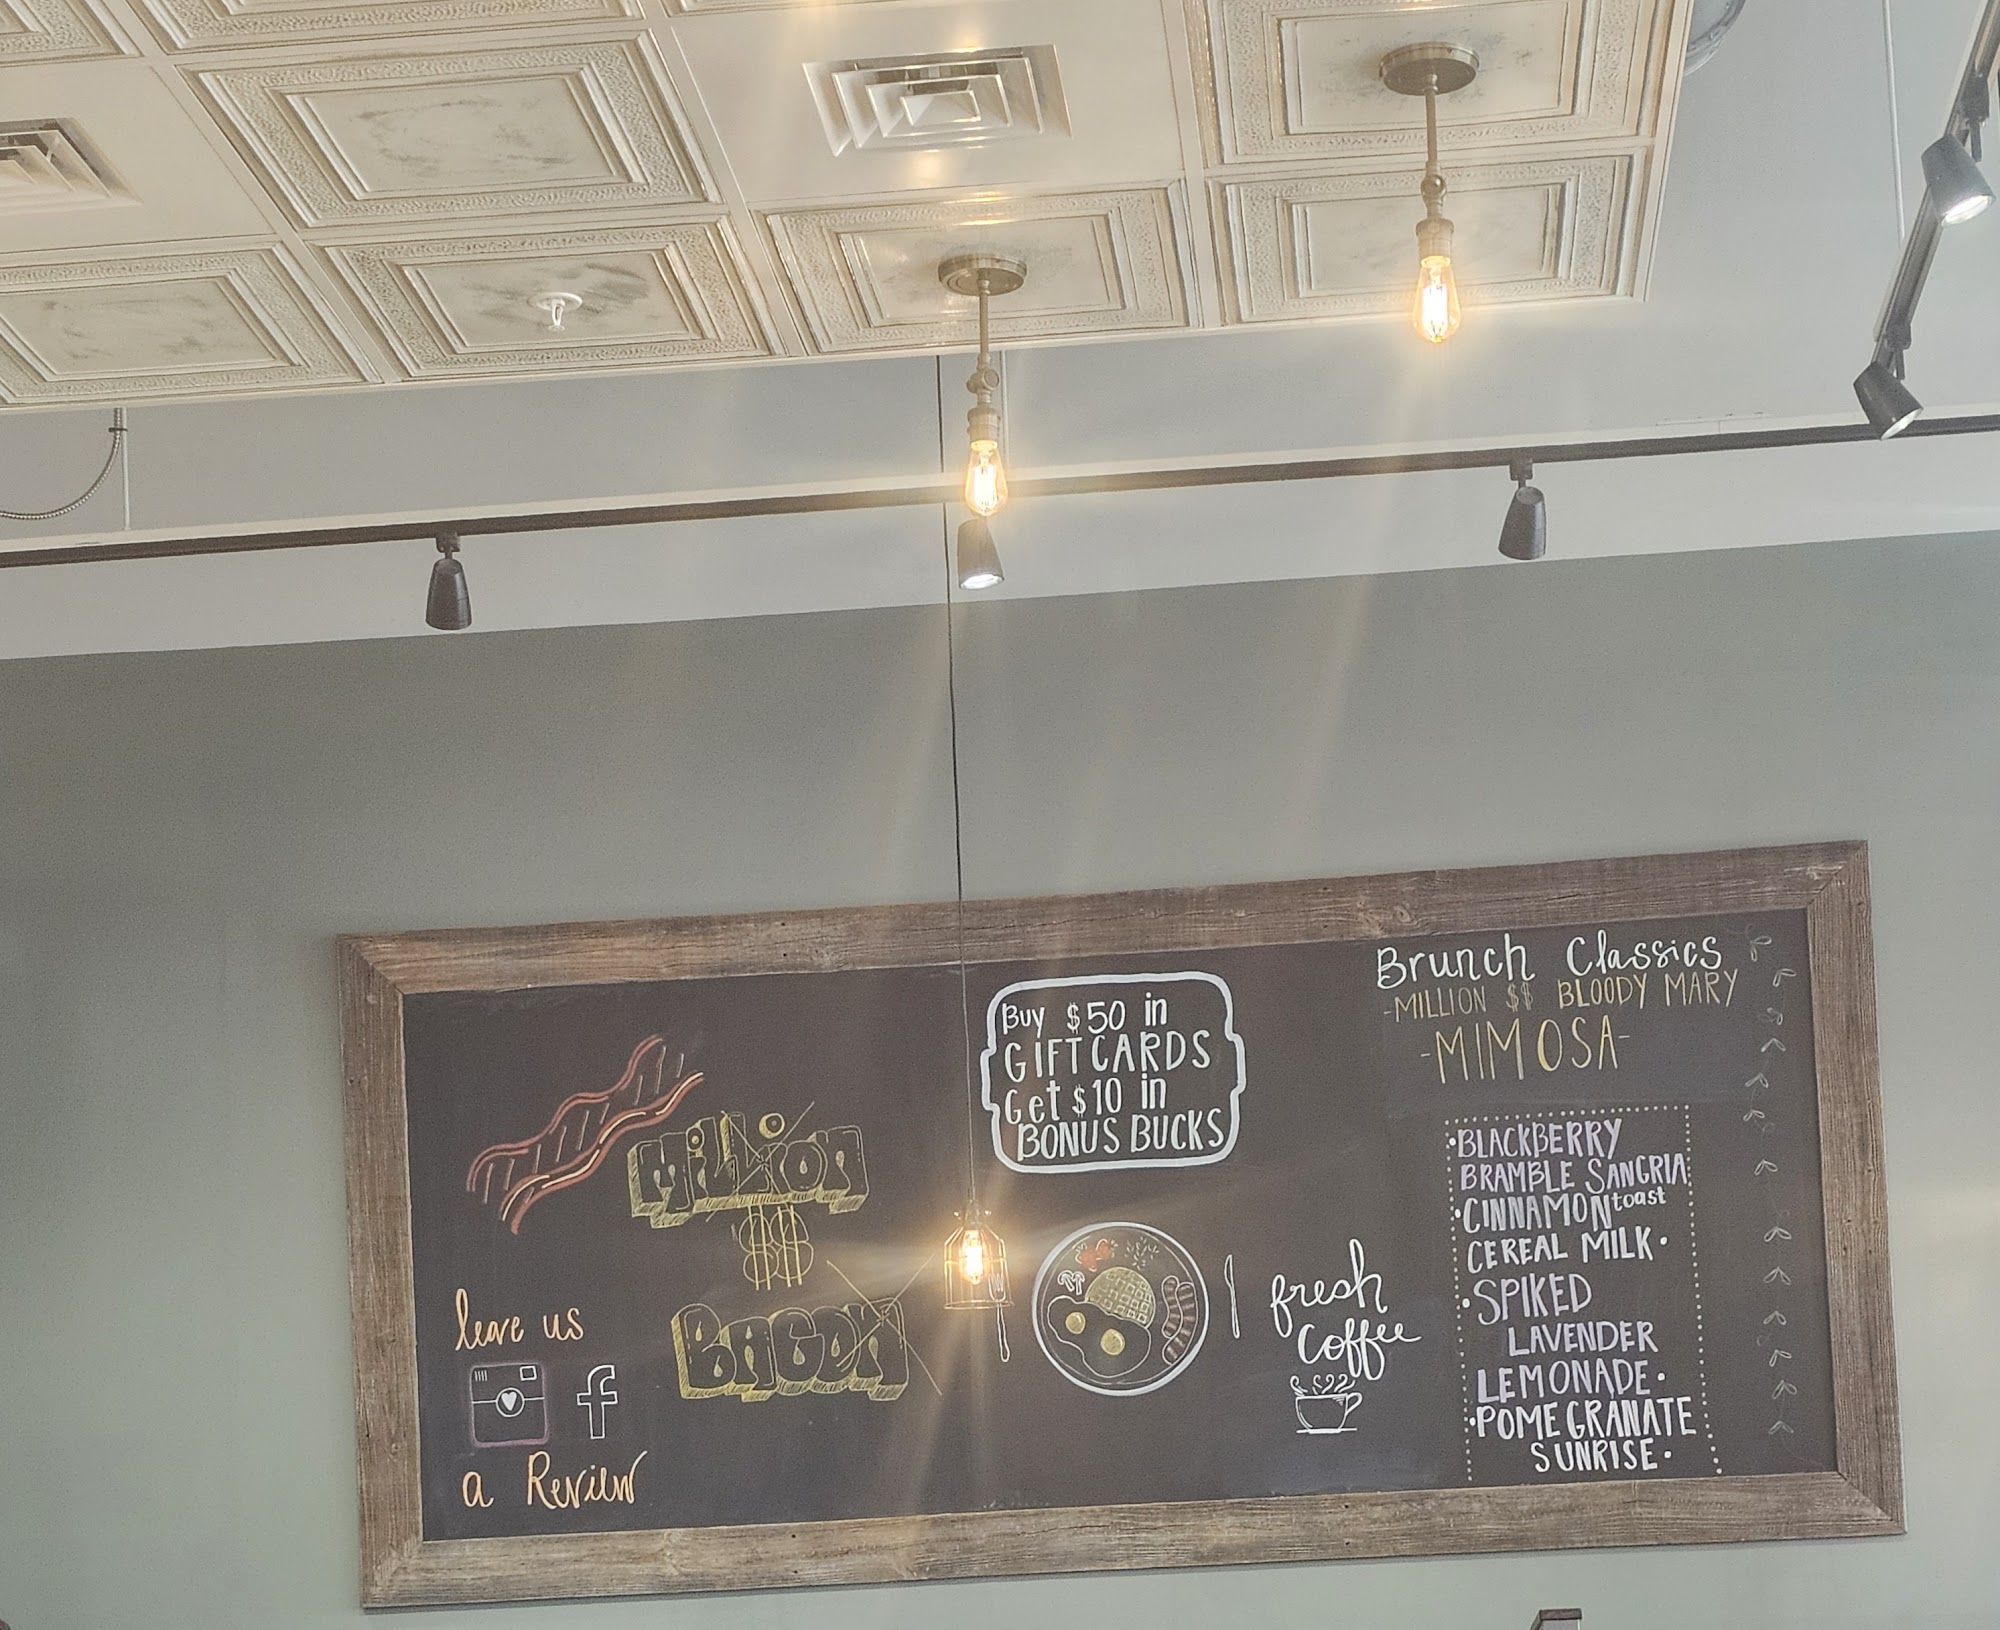 Million
$$
BACON
leave us
a Review
Buy $50 in
GIFT CARDS
Get $10 in
BONUS BUCKS
fresh
Coffee
Brunch Classics
-MILLION $$ BLOODY MARY
-MIMOSA-
•BLACKBERRY
BRAMBLE SANGRIA
•CINNAMON toast
CEREAL MILK•
•SPIKED
LAVENDER
LEMONADE•
•POMEGRANATE
SUNRISE•